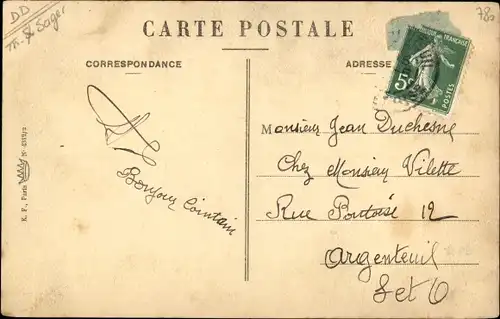 DD
Th. & Sager
780
CARTE POSTALE
CORRESPONDANCE
ADRESSE
RÉPUBLIQUE FRANÇAISE
5c
POSTES
Monsieur Jean Duchesne
Chez Monsieur Vilette
Rue Pontoise 12
Argenteuil
S et O
Bonjour Lointain
E. F., Paris